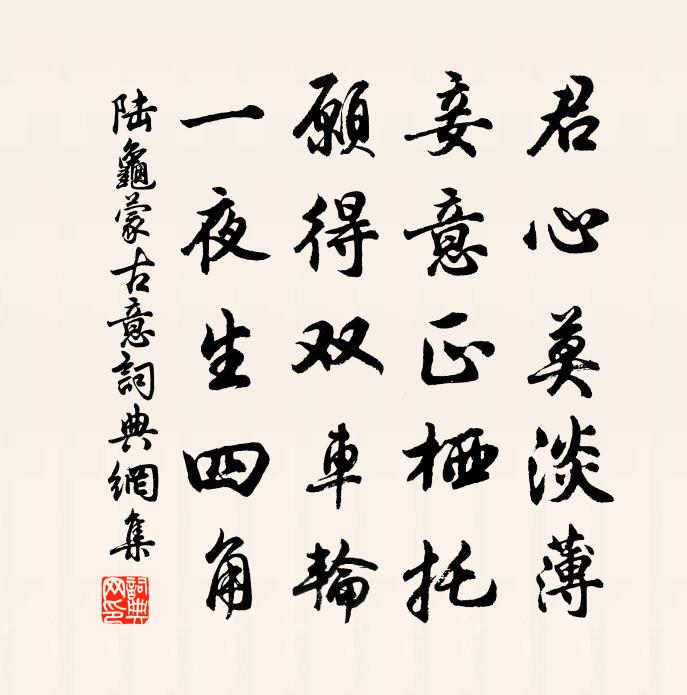 君心莫淡薄
妾意正栖托
願得双車輪
一夜生四角
陆龜蒙古意詞典網集
詞典網印